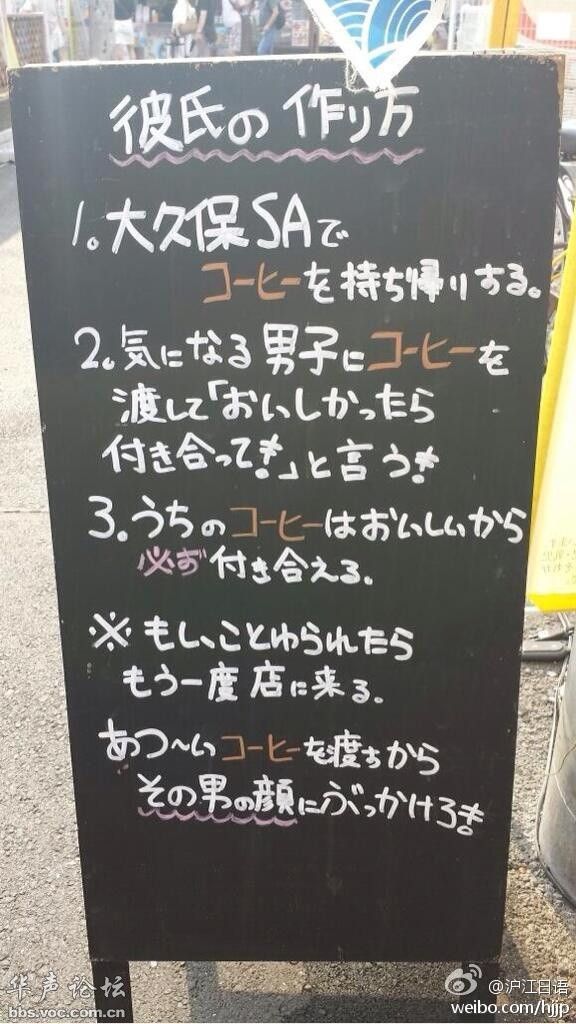 彼氏の作り方
1。大久保SAで
コーヒーを持ち帰りする。
2。気になる男子にコーヒーを
渡して「おいしかったら
付き合って!」と言う!
3。うちのコーヒーはおいしいから
必ず付き合える。
※もし、ことわられたら
もう一度店に来る。
あつ〜いコーヒーを渡すから
その男の顔にぶっかけろ!
华声论坛
bbs.voc.com.cn
@沪江日语
weibo.com/hjjp